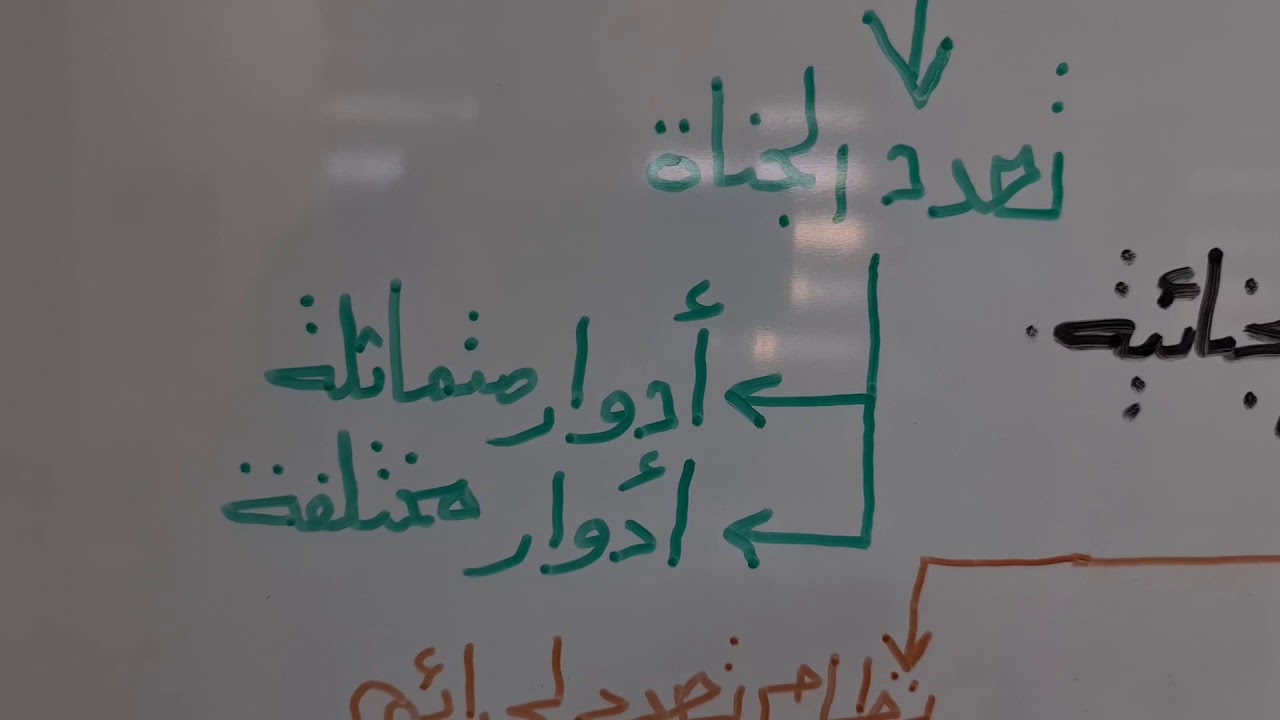 تعدد الجناة
أدوار متماثلة
أدوار مختلفة
نظام تعدد الجرائم